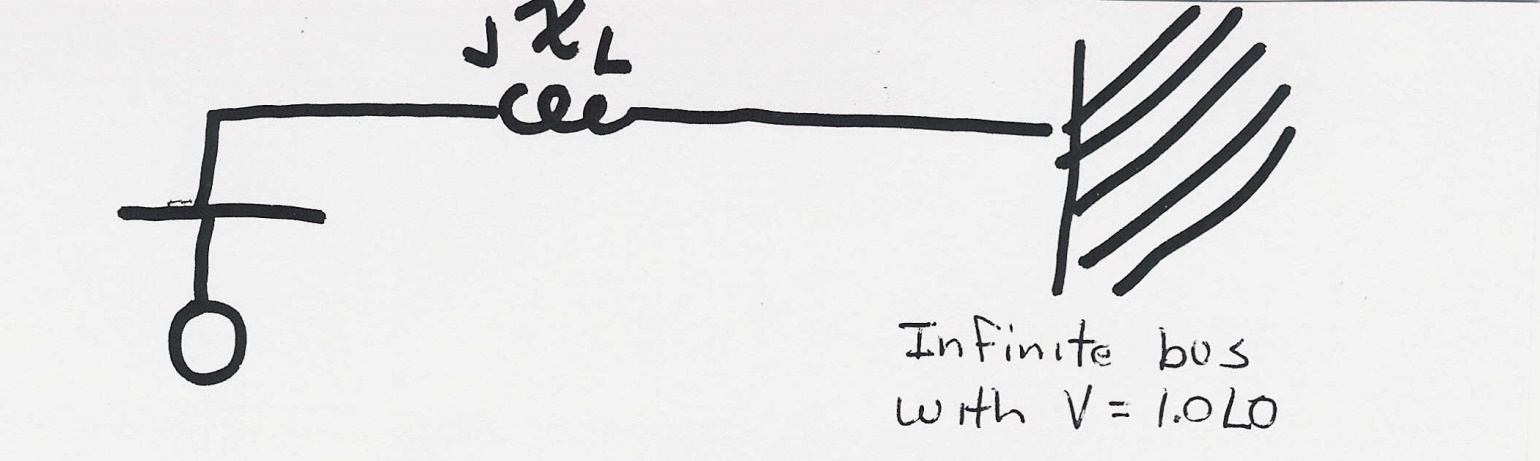 JXL
Infinite bus
with V = 1.0∠0